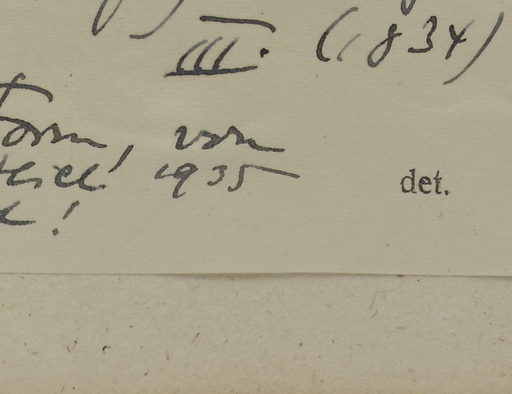 III. (1834)
Form, von
1935
det.
!